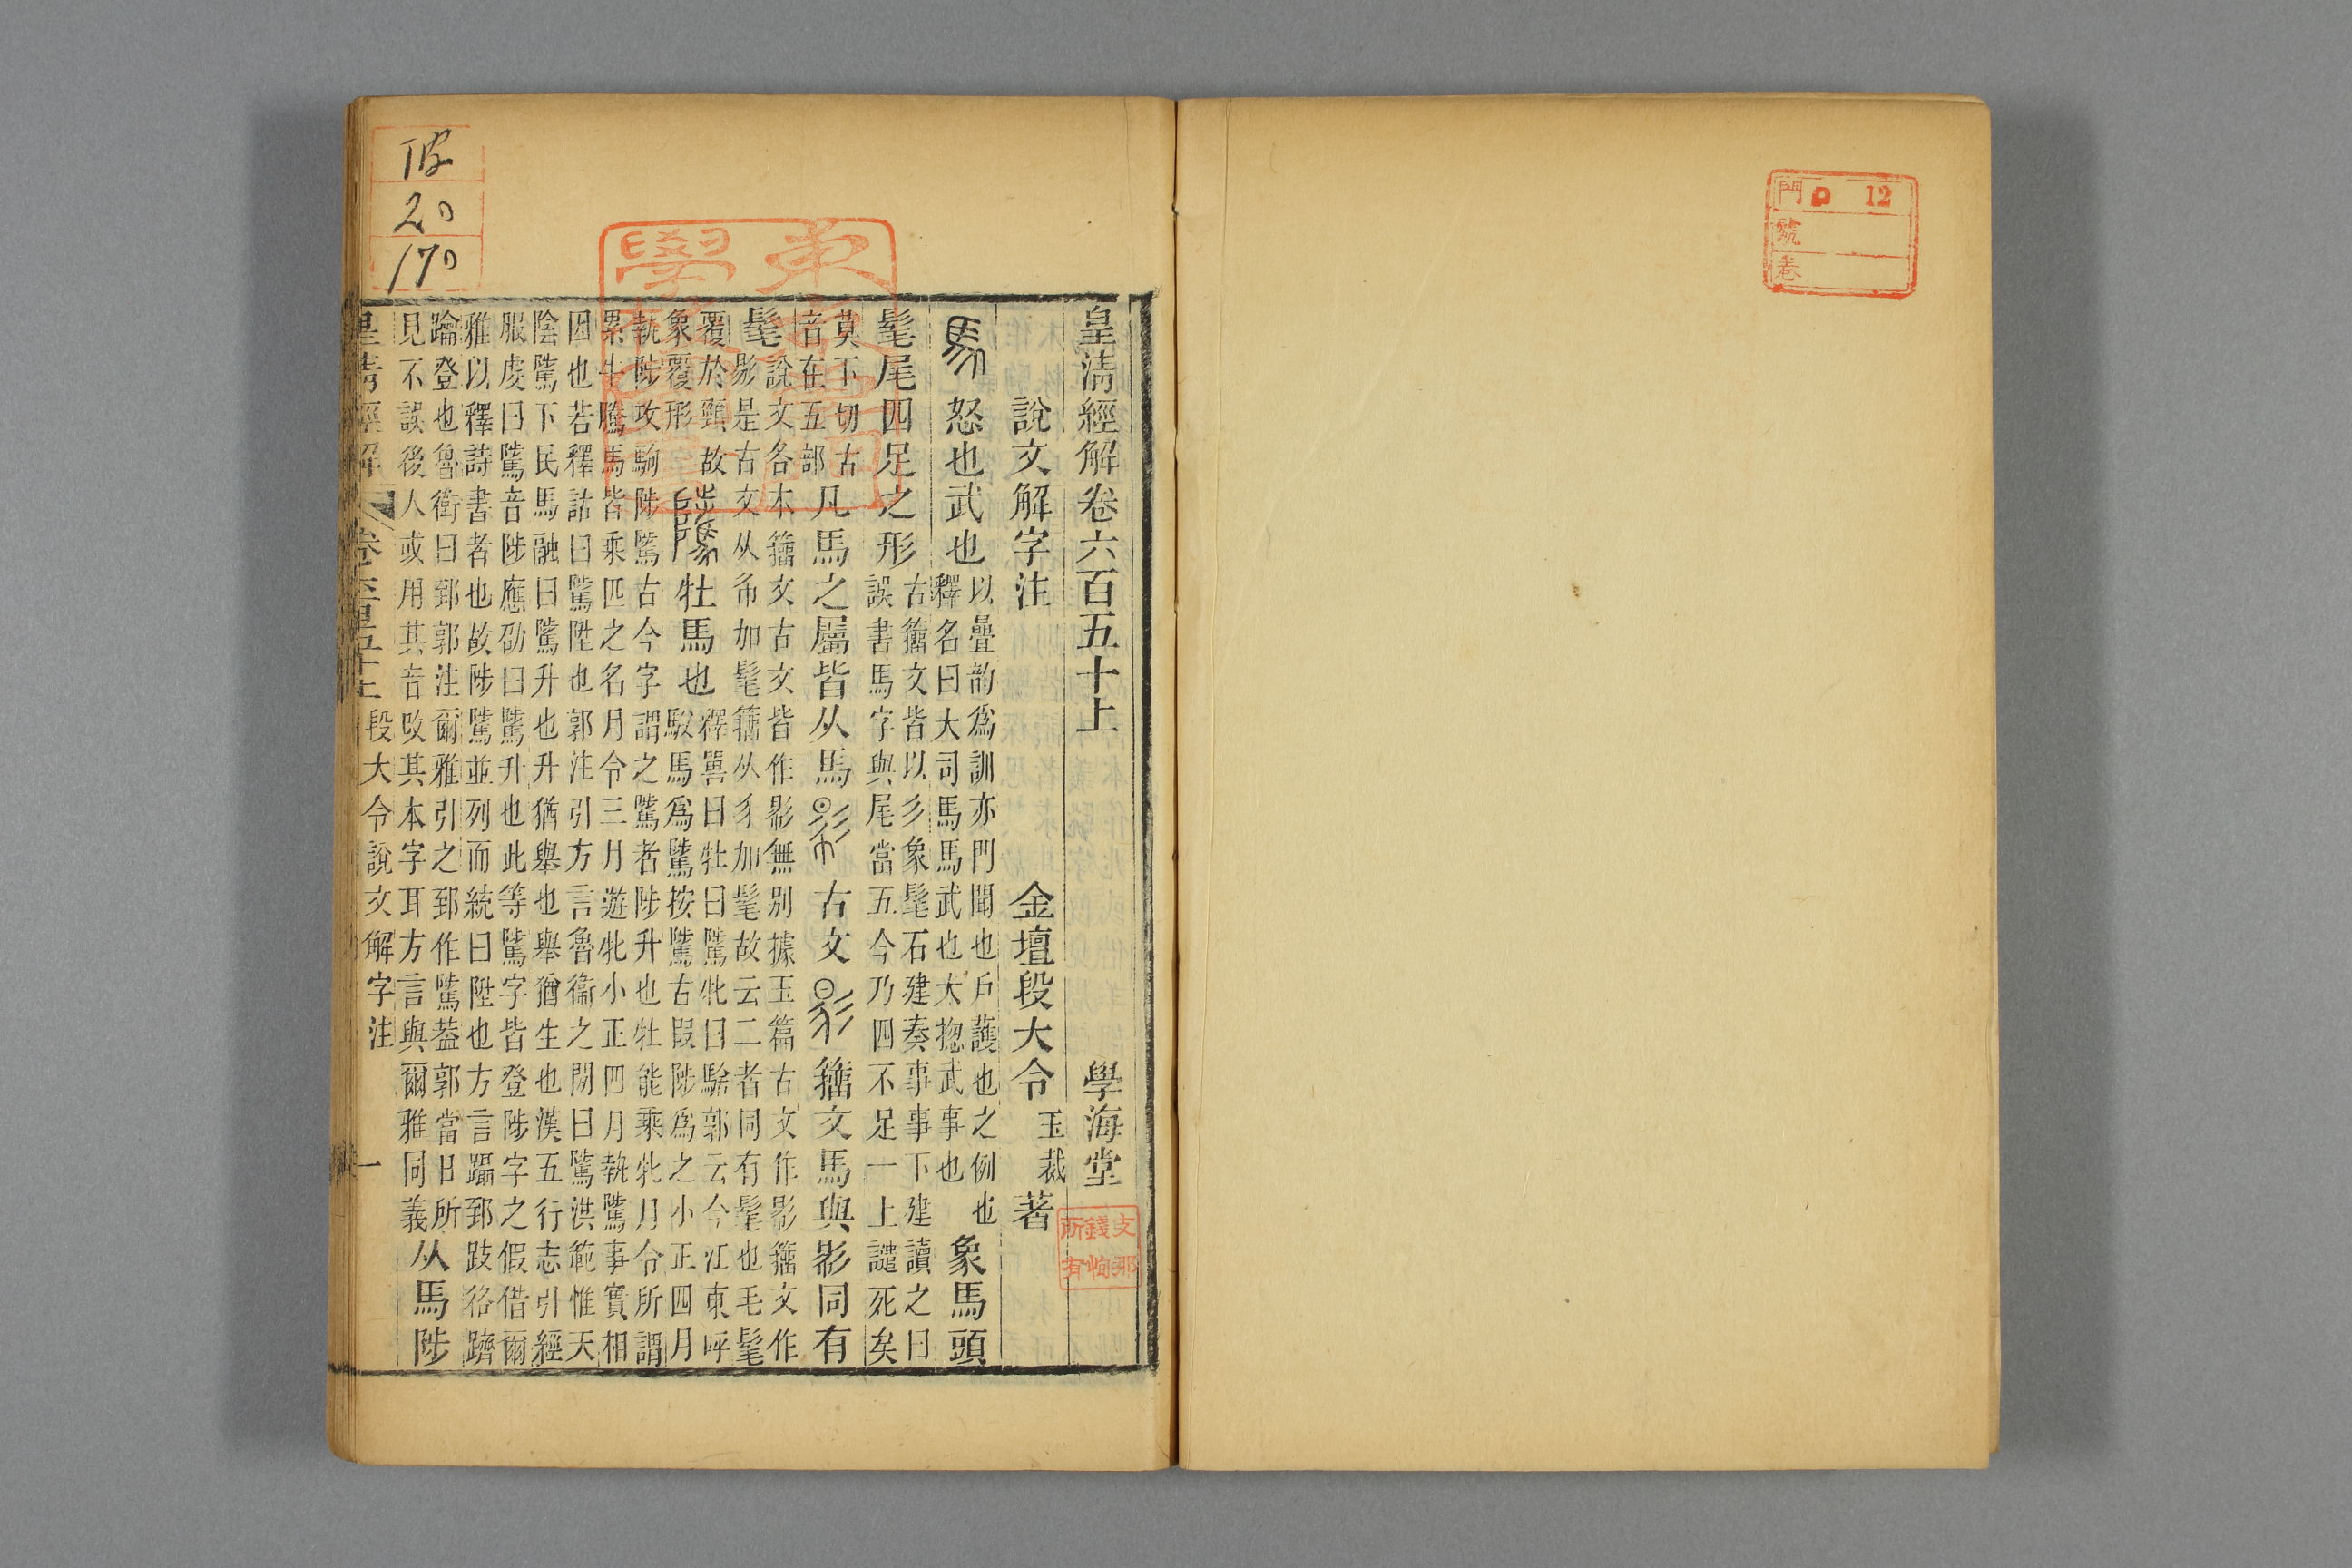 門 D 12
號
卷
皇清經解卷六百五十上 學海堂
說文解字注 金壇段大令玉裁著
馬 怒也武也
以疊韵爲訓亦門聞也戶護也之例也
釋名曰大司馬馬武也大揔武事也
象馬頭
髦尾四足之形
古籒文皆以彡象髦石建奏事事下建讀之曰
誤書馬字與尾當五今乃四不足一上譴死矣
莫下切古
音在五部
凡馬之屬皆从馬 古文 籒文馬與影同有
髦
說文各本籒文古文皆作影無別據玉篇古文作影籒文作
影是古文从加髦籒从豸加髦故云二者同有髦也毛髦
覆於頸故
象覆形
騭 牡馬也
釋嘼曰牡曰騭牝曰騇郭云今江東呼
馭馬爲騭按騭古叚陟爲之小正四月
執陟攻駒陟騭古今字謂之騭者陟升也牡能乘牝月令所謂
累牛騰馬皆乘匹之名月令三月遊牝小正四月執騭事實相
因也若釋詁曰騭陞也郭注引方言魯衞之閒曰騭洪範惟天
陰騭下民馬融曰騭升也升猶舉也舉猶生也漢五行志引經
服虔曰騭音陟應劭曰騭升也此等騭字皆登陟字之假借爾
雅以釋詩書者也故陟騭並列而統曰陞也方言躡郅跂狢躋
踚登也魯衛曰郅郭注爾雅引之郅作騭葢郭當日所
見不誤後人或用其音改其本字耳方言與爾雅同義
从馬陟
皇清經解 卷六百五十上 段大令說文解字注 一
支那
錢恂
所有
20
170